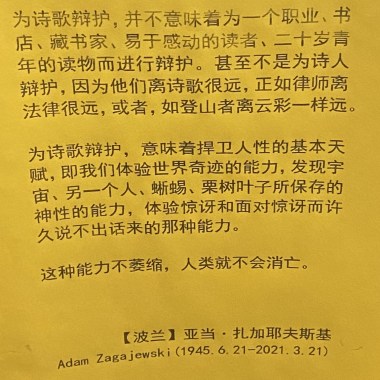 为诗歌辩护，并不意味着为一个职业、书
店、藏书家、易于感动的读者、二十岁青
年的读物而进行辩护。甚至不是为诗人
辩护，因为他们离诗歌很远，正如律师离
法律很远，或者，如登山者离云彩一样远。
为诗歌辩护，意味着捍卫人性的基本天
赋，即我们体验世界奇迹的能力，发现宇
宙、另一个人、蜥蜴、栗树叶子所保存的
神性的能力，体验惊讶和面对惊讶而许
久说不出话来的那种能力。
这种能力不萎缩，人类就不会消亡。
【波兰】亚当·扎加耶夫斯基
Adam Zagajewski(1945.6.21-2021.3.21)